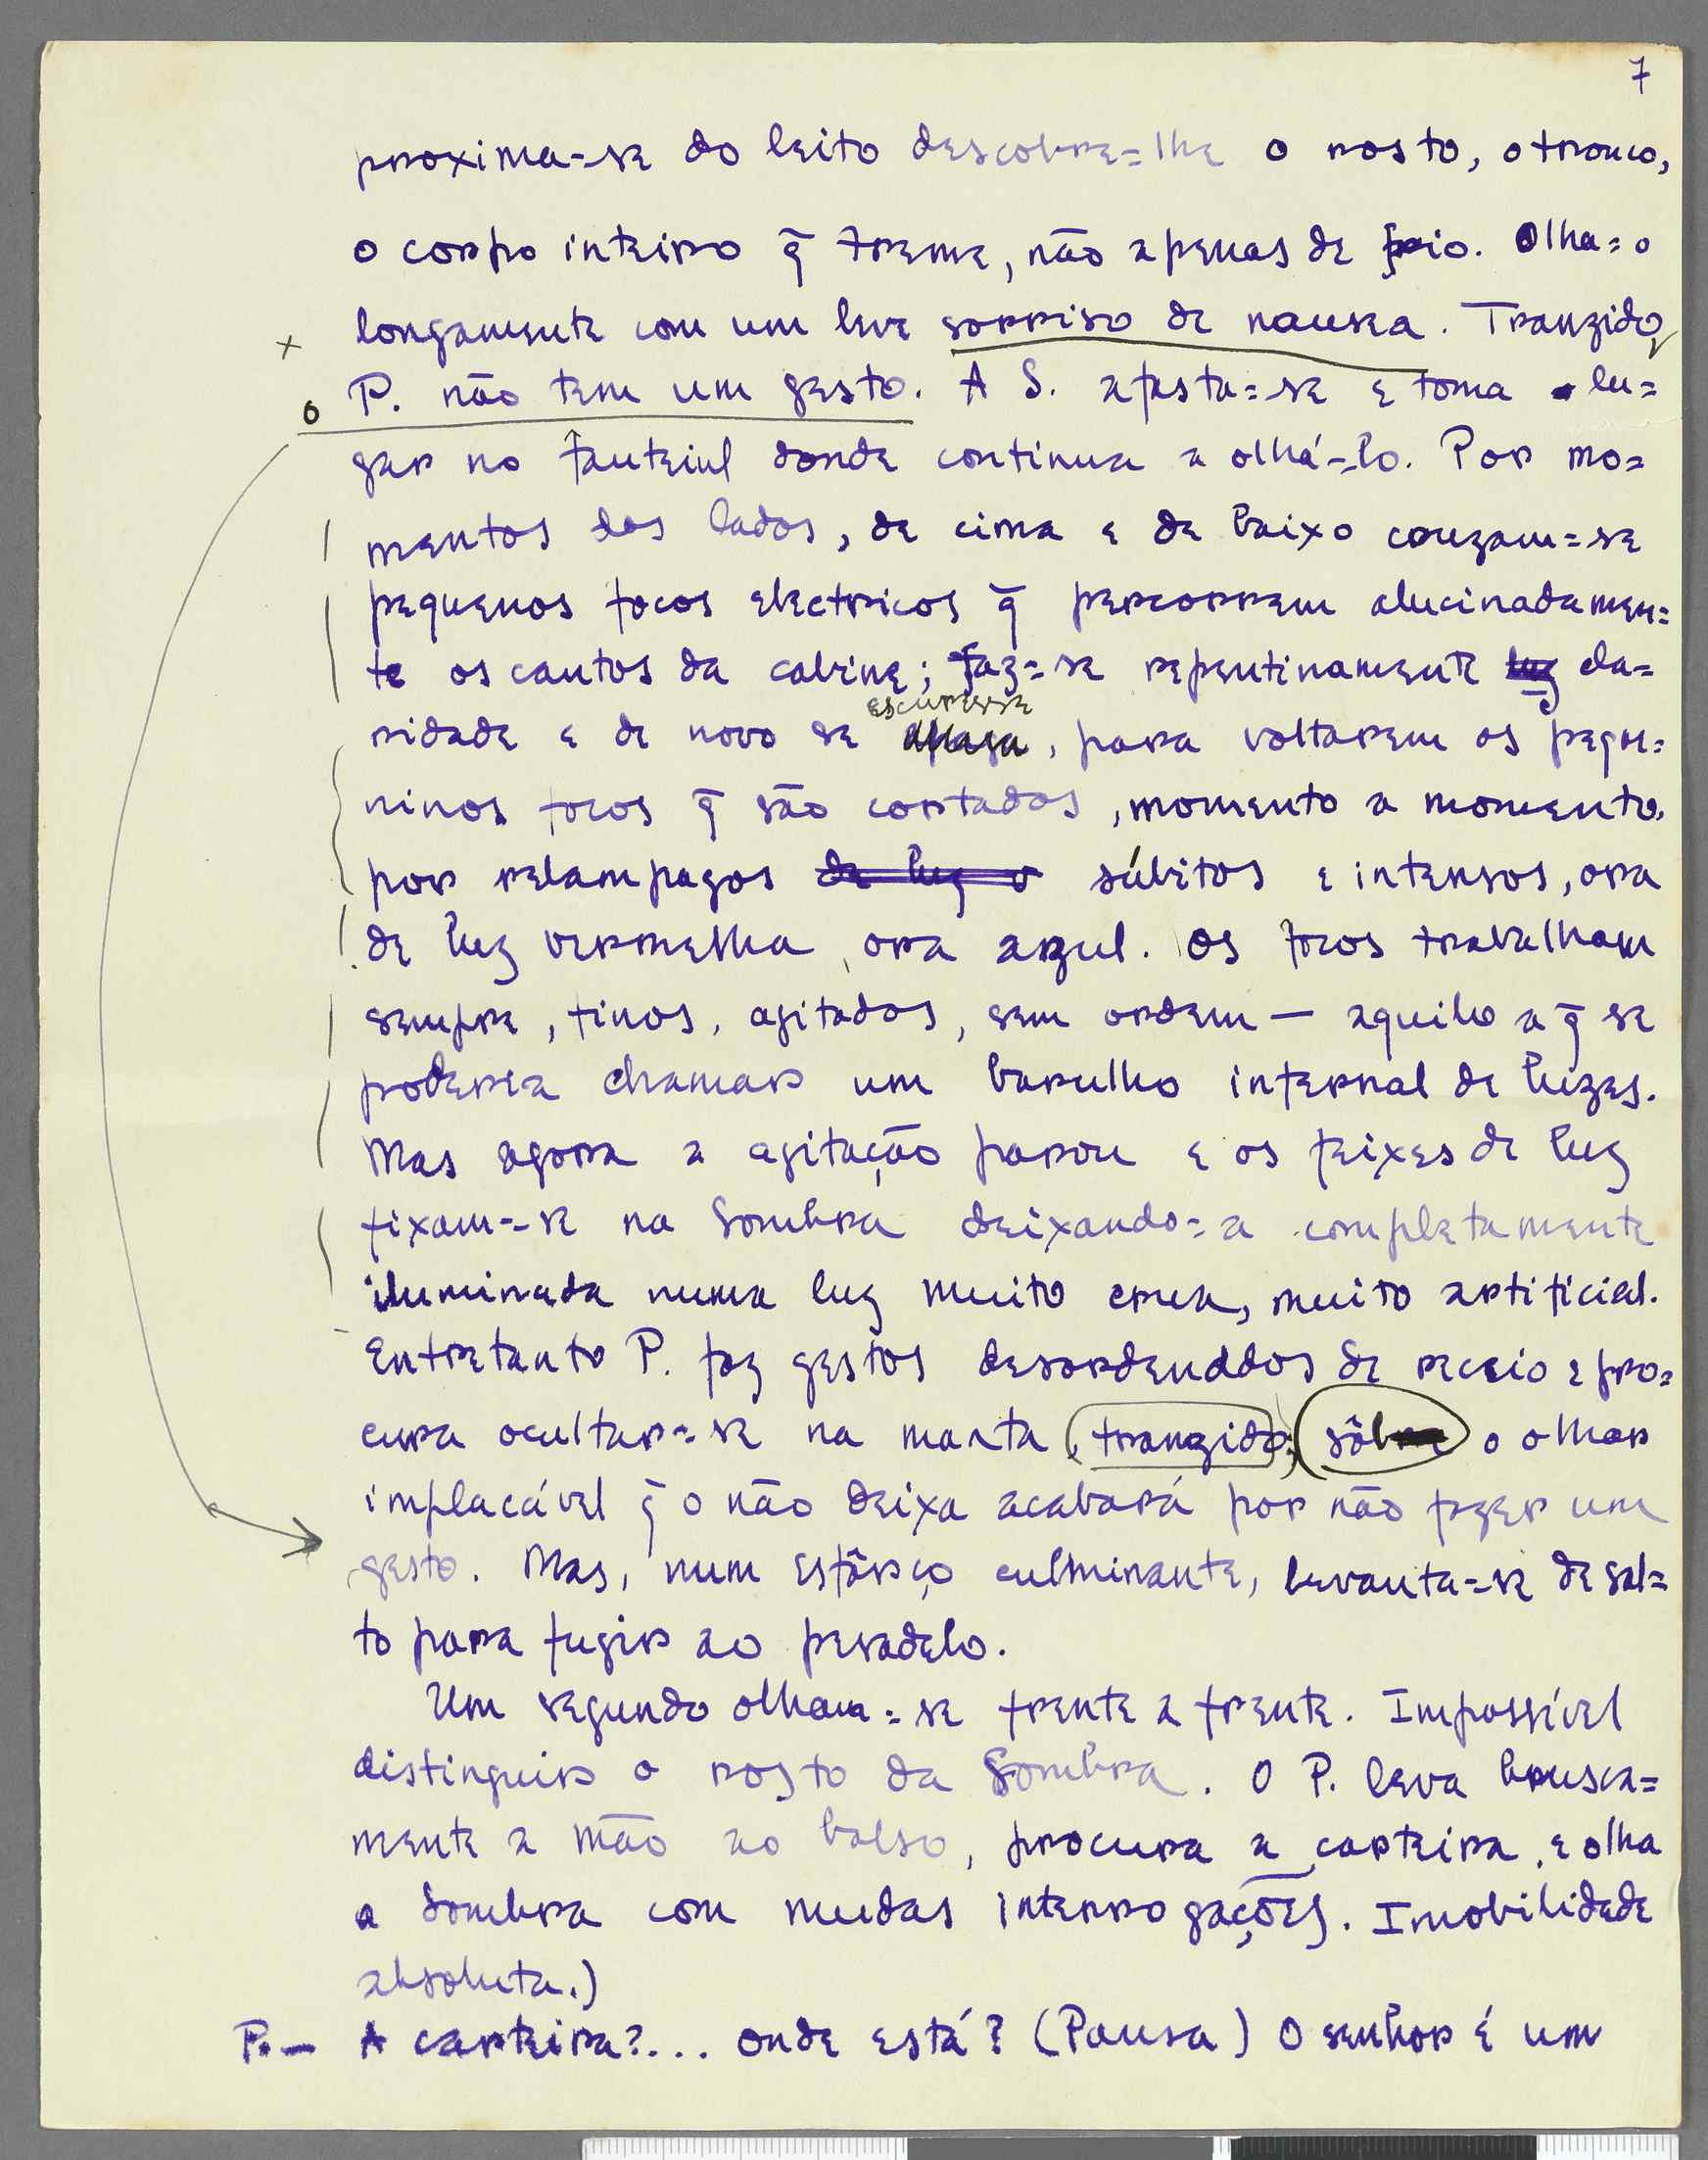 7
proxima=se do leito descobre=lhe o rosto, o tronco,
o corpo inteiro q̃ treme, não apenas de frio. Olha=o
longamente com um leve sorriso de nausea. Tranzido,
x
o P. não tem um gesto. A S. afasta=se e toma lu=
gar no fauteiul donde continua a olhá-lo. Por mo=
mentos dos lados, de cima e de baixo cruzam=se
pequenos focos electricos q̃ percorrem alucinadamen=
te os cantos da cabine; faz=se repentinamente luz cla=
ridade e de novo se apaga escurece, para voltarem os peque=
ninos focos q̃ são cortados, momento a momento,
por relampagos de luz v súbitos e intensos, ora
de luz vermelha, ora azul. Os focos trabalham
sempre, finos, agitados, sem ordem — aquilo a q̃ se
poderia chamar um barulho infernal de luzes.
Mas agora a agitação parou e os feixes de luz
fixam=se na Sombra deixando=a completamente
iluminada numa luz muito crua, muito artificial.
Entretanto P. faz gestos desordenados de receio e pro=
cura ocultar=se na manta, tranzido; sôbre o olhar
implacável q̃ o não deixa acabará por não fazer um
gesto. Mas, num esfôrço culminante, levanta=se de sal=
to para fugir ao pesadelo.
Um segundo olham=se frente a frente. Impossível
distinguir o rosto da Sombra. O P. leva brusca=
mente a mão ao bolso, procura a carteira, e olha
a Sombra com mudas interrogações. Imobilidade
absoluta.)
P. — A carteira?... Onde está? (Pausa) O senhor é um